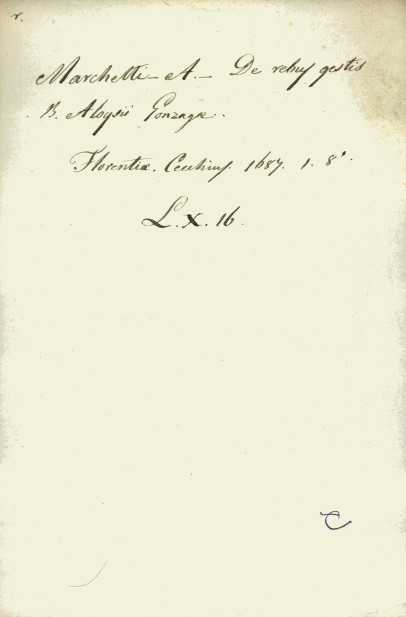 r.
Marchetti - A - De rebus gestis
B. Aloysii Gonzagæ.
Florentiæ. Cecchius. 1687. 1. 8°.
L. X. 16.
C